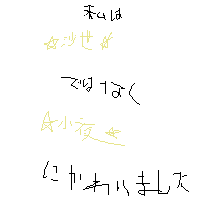 私は
☆沙世☆
ではなく
☆小夜☆
にかわりました